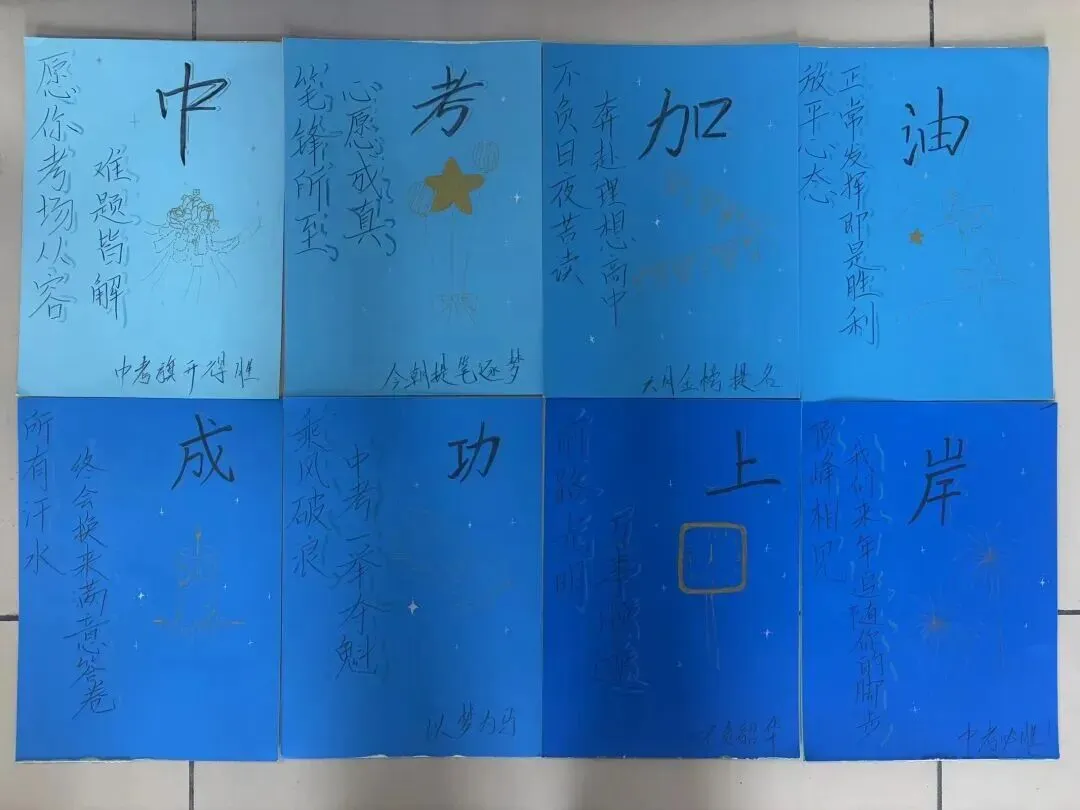 中
愿你考场从容
难题皆解
中考旗开得胜
考
笔锋所至
心愿成真
今朝提笔逐梦
加
不负日夜苦读
奔赴理想高中
六月金榜提名
油
放平心态
正常发挥即是胜利
成
所有汗水
终会换来满意答卷
功
乘风破浪
中考一举夺魁
以梦为马
上
前路光明
万事顺遂
不负韶华
岸
顶峰相见
我们来年追随你的脚步
中考必胜